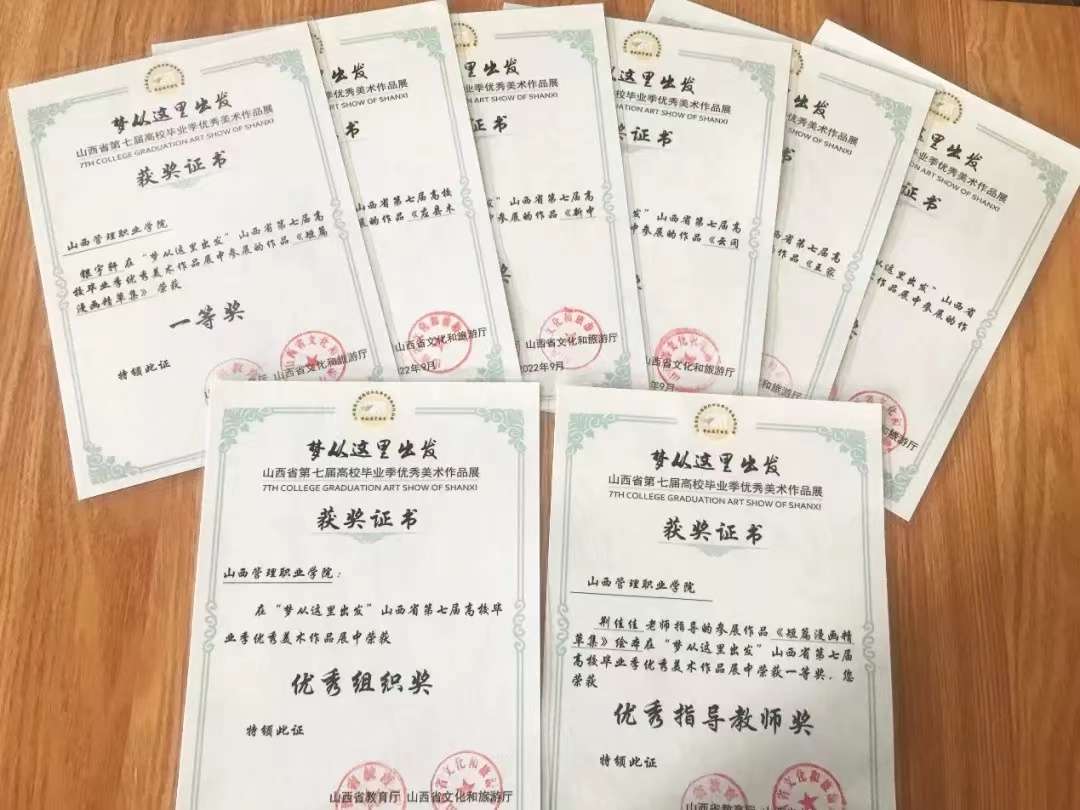 梦从这里出发
山西省第七届高校毕业季优秀美术作品展
7TH COLLEGE GRADUATION ART SHOW OF SHANXI
获奖证书
山西管理职业学院
银宇轩 在“梦从这里出发”山西省第七届高
校毕业季优秀美术作品展中参展的作品《短篇
漫画精草集》荣获
一等奖
特颁此证
山西省文化和旅游厅
出发
季优秀美术作品展
ART SHOW OF SHANXI
书
山西省第七届高校
展的作品《应县木
山西省文化和旅游厅
22年9月
里出发
季优秀美术作品展
ART SHOW OF SHANXI
证书
”山西省第七届高
中参展的作品《新中
山西省文化和旅游厅
2022年9月
这里出发
毕业季优秀美术作品展
GRADUATION ART SHOW OF SHANXI
证书
发”山西省第七届高
中参展的作品《云冈
山西省文化和旅游厅
年9月
出发
优秀美术作品展
SHOW OF SHANXI
书
西省第七届高
作品《王家
和旅游厅
这里出发
毕业季优秀美术作品展
ART SHOW OF SHANXI
证书
从这里出发”山西省
作品展中参展的作
文化和旅游厅
梦从这里出发
山西省第七届高校毕业季优秀美术作品展
7TH COLLEGE GRADUATION ART SHOW OF SHANXI
获奖证书
山西管理职业学院：
在“梦从这里出发”山西省第七届高校毕
业季优秀美术作品展中荣获
优秀组织奖
特颁此证
山西省教育厅 山西省文化和旅游厅
梦从这里出发
山西省第七届高校毕业季优秀美术作品展
7TH COLLEGE GRADUATION ART SHOW OF SHANXI
获奖证书
山西管理职业学院
荆佳佳 老师指导的参展作品《短篇漫画精
草集》绘本在“梦从这里出发”山西省第七届
高校毕业季优秀美术作品展中荣获一等奖，您
荣获
优秀指导教师奖
特颁此证
山西省教育厅 山西省文化和旅游厅